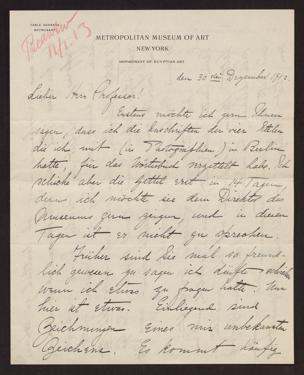 CABLE ADDRESS
METROPOLITAN MUSEUM OF ART
NEW YORK
DEPARTMENT OF EGYPTIAN ART
11/1.13
den 30 ten Dezember 1912.
Lieber Herr Professor.
Erstens möchte ich gern Ihnen
sagen, dass ich die Inschriften der vier Stelen
die ich mit (in Photographien) in Berlin
hatte, für das Wörterbuch verzettelt habe. Ich
schicke aber die Zettel erst in 14 Tagen,
denn ich möchte sie dem Direktor des
Museums gern zeigen, und in diesen
Tagen ist er nicht zu sprechen.
Früher sind Sie mal so freund-
lich gewesen zu sagen ich dürfte
wenn ich etwas zu fragen hätte. Nun
hier ist etwas. Einliegend sind
Zeichnungen eines mir unbekannten
Zeichens. Es kommt häufig